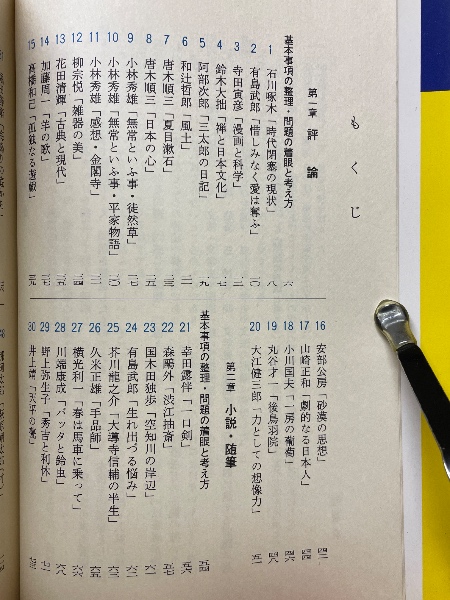 もくじ
第一章 評論
基本事項の整理・問題の着眼と考え方 六
1 石川啄木「時代閉塞の現状」 八
2 有島武郎「惜しみなく愛は奪ふ」 一〇
3 寺田寅彦「漫画と科学」
4 鈴木大拙「禅と日本文化」
5 阿部次郎「三太郎の日記」
6 和辻哲郎「風土」
7 唐木順三「夏目漱石」
8 唐木順三「日本の心」
9 小林秀雄「無常といふ事・徒然草」
10 小林秀雄「無常といふ事・平家物語」
11 小林秀雄「感想・金閣寺」
12 柳宗悦「雑器の美」
13 花田清輝「古典と現代」
14 加藤周一「羊の歌」
15 高橋和己「孤独なる遊戯」
16 安部公房「砂漠の思想」 四二
17 山崎正和「劇的なる日本人」 四四
18 小川国夫「一房の葡萄」 四六
19 丸谷才一「後鳥羽院」 四八
20 大江健三郎「力としての想像力」 五一
第二章 小説・随筆
基本事項の整理・問題の着眼と考え方 五四
21 幸田露伴「一口剣」 五六
22 森鷗外「渋江抽斎」
23 国木田独歩「空知川の岸辺」
24 有島武郎「生れ出づる悩み」
25 芥川龍之介「大導寺信輔の半生」
26 久米正雄「手品師」
27 横光利一「春は馬車に乗って」 六六
28 川端康成「バッタと鈴虫」 六八
29 野上弥生子「秀吉と利休」
30 井上靖「天平の甍」